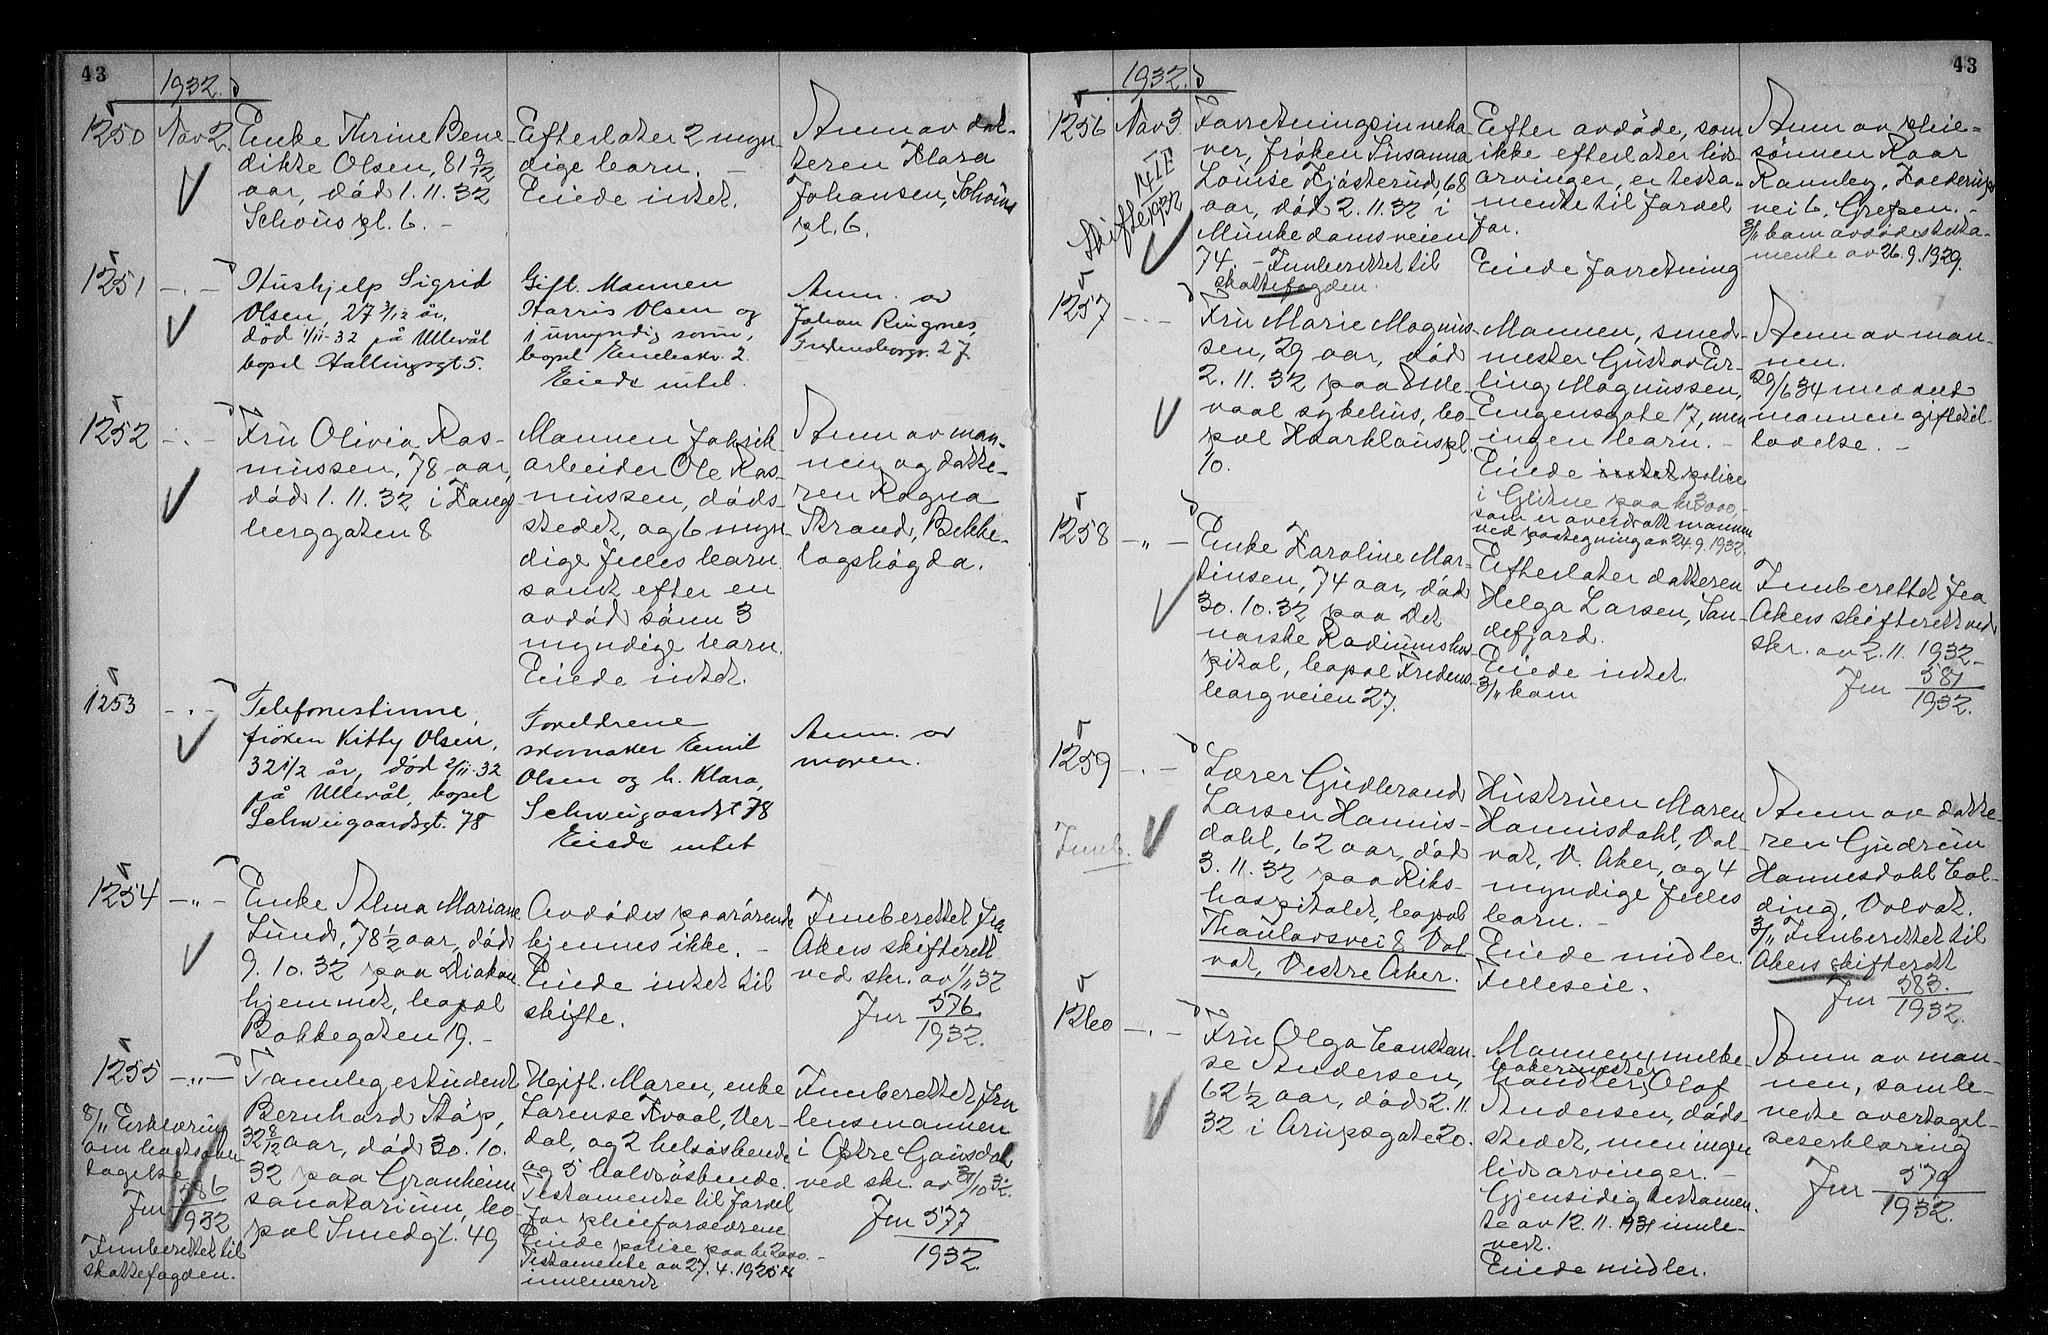 43
1932.
1250
Nov 2.
Enke Thrine Bene
dikte Olsen, 81 9/12
aar, död 1.11.32
Schous pl. 6. -
Efterlater 2 myn
dige barn. -
Eiede intet.
Anm av dat-
teren Klara
Johansen, Schous
pl. 6.
1251
Hushjelp Sigrid
Olsen, 27 3/12 år,
död 1/11-32 på Ullevål
bopel Hallingsgt 5.
Gift. Mannen
Harris Olsen og
1 umyndig sönn,
bopel 2.
Eiede intet.
Anm. av
Johan Ringnes,
Fredensborgv. 27
1252
Fru Olivia Ras-
mussen, 78 aar,
död 1.11.32 i Lang
berggaten 8
Mannen fabrik
arbeider Ole Ras-
mussen, döds-
stedet, og 6 myn
dige felles barn
samt efter en
avdöd sönn 3
myndige barn.
Eiede intet.
Anm av man-
nen og datte-
ren Ragna
Strand, Bekke-
lagshögda.
1253
Telefonistinne,
fröken Kitty Olsen,
32 1/2 år, död 2/11-32
på Ullevål, bopel
Schweigaardsgt. 78
Foreldrene
skomaker Emil
Olsen og h. Klara,
Schweigaardsgt 78
Eiede intet
Anm. av
moren.
1254
Enke Alma Mariane
Lund, 78 1/2 aar, död
9.10.32 paa Diakon
hjemmet, bopel
Bakkegaten 19. -
Avdödes paarörende
kjennes ikke. -
Eiede intet til
skifte.
Innberettet fra
Akers skifterett
ved skr. av 1/11 32
Jnr 576
1932.
1255
8/11 Erklæring
om
tagelse
Jnr 586
1932
Innberettet til
skattefogden.
Tannlegestudent
Bernhard Stöp,
32 8/12 aar, död 30.10.
32 paa Granheim
sanatorium, bo
pel Smedgt. 49
Ugift. Moren, enke
Lorense Kvaal, Ver-
dal, og 2 helsösken
og 5 halvsöskende.
Testamente til fordel
for pleieforeldrene
Eiede police paa kr 2000.-
Testamente av 27.4.1925
innlevert
Innberettet fra
lensmannen
i Östre Gausdal
ved skr. av 31/10 32.
Jnr 577
1932.
43
1932.
1256
Nov 3.
Skifte 14 II
1932
Forretningsinneha
ver, fröken Susanna
Louise Kjösterud, 68
aar, död 2.11.32 i
Munkedamsveien
74. - Innberettet til
skattefogden.
Efter avdöde, som
ikke efterlater livs
arvinger, er testa-
mente til fordel
for.
Eiede forretning
Anm av pleie-
sönnen Roar
vei 6, Grefsen. -
3/11 kom avdödes testa-
mente av 26.9.1929.
1257
Fru Marie Magnus-
sen, 29 aar, död
2.11.32 paa Ulle-
vaal sykehus, bo-
pel Haarklous pl.
10.
Mannen, smed-
mester Gustav Er-
ling Magnussen,
Eugensgate 17, men
ingen barn. -
Eiede intet police
i Glitne paa kr 3000,-
som er overdratt mannen
ved paategning av 24.9.1932.
Anm av man-
nen.
29/6 34 meddelt
mannen giftetil-
ladelse. -
1258
Enke Karoline Mar-
tinsen, 74 aar, död
30.10.32 paa Det
norske Radiumshos
pital, bopel Fredens-
borgveien 27.
Efterlater datteren
Helga Larsen, San-
defjord.
Eiede intet.
3/11 kom
Innberettet fra
Akers skifterett ved
skr. av 2.11.1932.
Jnr 581
1932.
1259
Innb.
Lærer Gudbrand
Larsen Hannis-
dahl, 62 aar, död
3.11.32 paa Riks-
hospitalet, bopel
Thaulowsvei 8 Vol
vat, Vestre Aker.
Hustruen Maren
Hannisdahl, Vol-
vat, V. Aker, og 4
myndige felles
barn. -
Eiede midler.
Felleseie.
Anm av datte-
ren Gudrun
Hannisdahl Col-
ding, Volvat.
3/11 Innberettet til
Akers skifterett
Jnr 583.
1932.
1260
Fru Olga Constan-
se Andersen,
62 1/2 aar, död 2.11.
32 i Arupsgate 20.
Mannen, melke
bakermester
handler, Olaf
Andersen, döds-
stedet, men ingen
livsarvinger. -
Gjensidig testamen.
te av 12.11.1931 innle-
vert.
Eiede midler.
Anm av man-
nen, som le-
verte overtagel-
seserklæring
Jnr 579
1932.